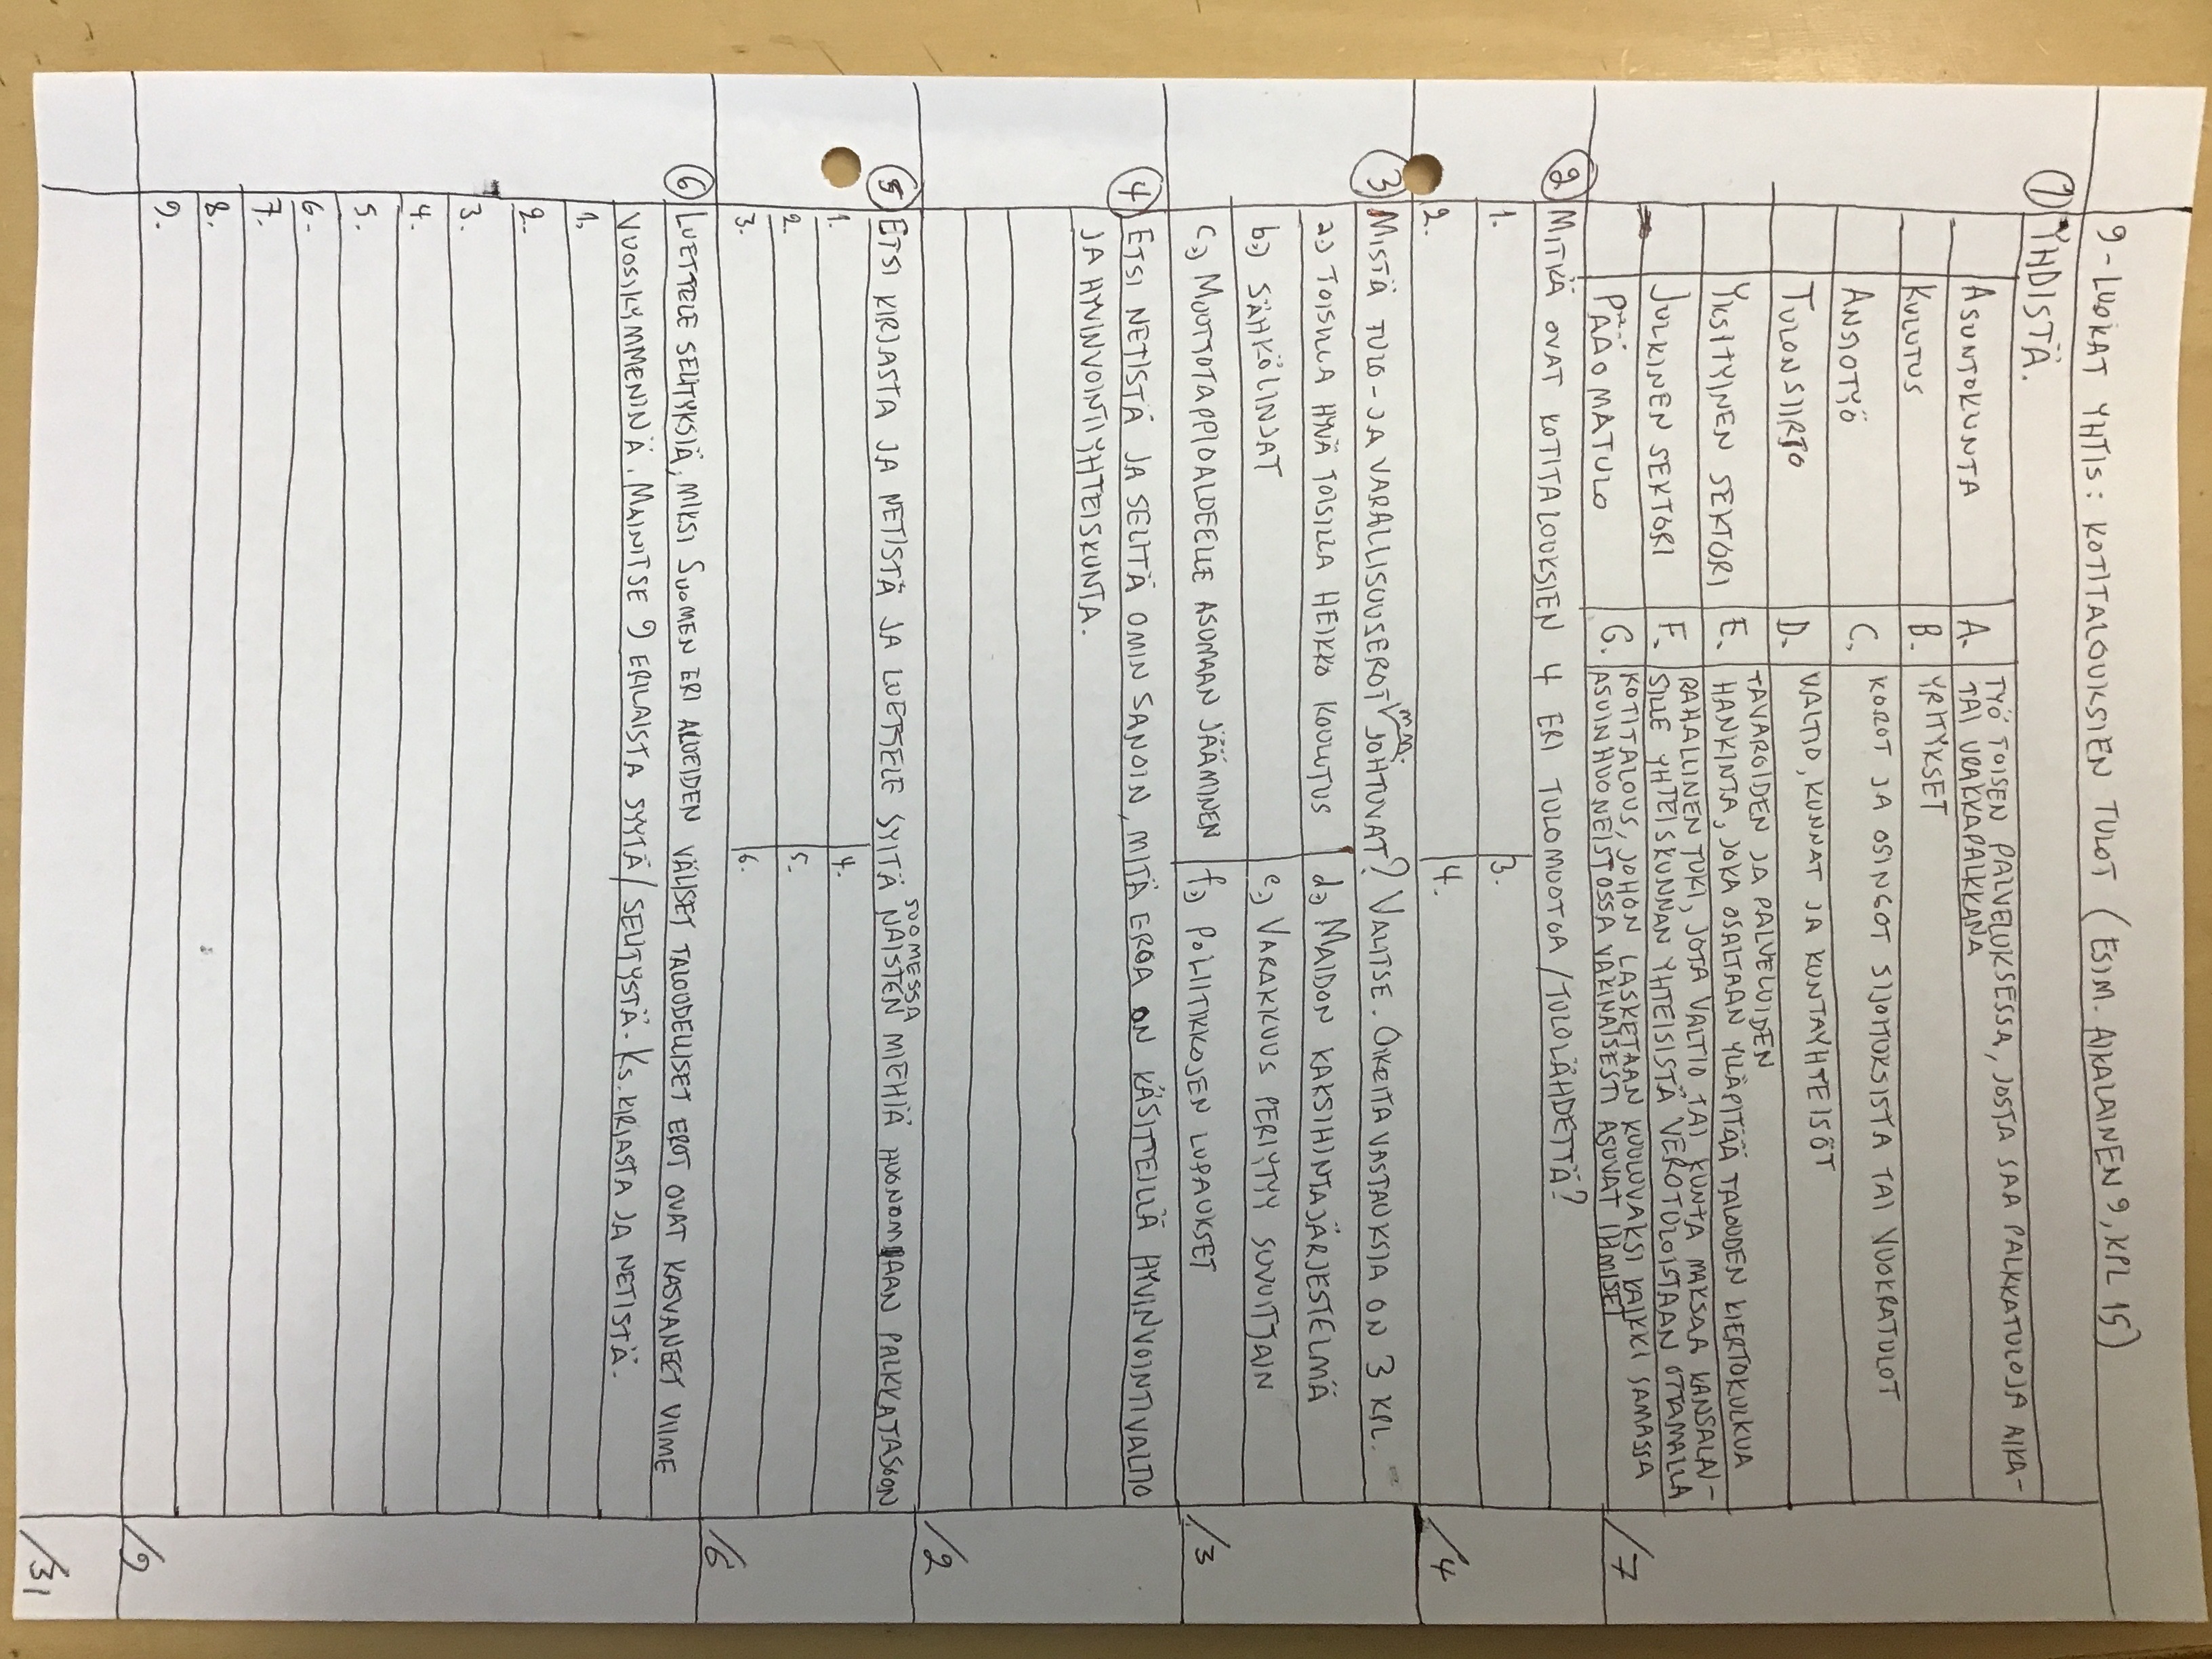 9-LUOKAT YHTIS: KOTITALOUKSIEN TULOT (ESIM. AIKALAINEN 9, KPL 15)
① YHDISTÄ.
ASUNTOKUNTA A. TYÖ TOISEN PALVELUKSESSA, JOSTA SAA PALKKATULOJA AIKA-
TAI URAKKAPALKKANA
KULUTUS B. YRITYKSET
ANSIOTYÖ C. KOROT JA OSINGOT SIJOITUKSISTA TAI VUOKRATULOT
TULONSIIRTO D. VALTIO, KUNNAT JA KUNTAYHTEISÖT
YKSITYINEN SEKTORI E. TAVAROIDEN JA PALVELUIDEN
HANKINTA, JOKA OSALTAAN YLLÄPITÄÄ TALOUDEN KIERTOKULKUA
JULKINEN SEKTORI F. RAHALLINEN TUKI, JOTA VALTIO TAI KUNTA MAKSAA KANSALAI-
SILLE YHTEISKUNNAN YHTEISISTÄ VEROTULOISTAAN OTTAMALLA
PÄÄOMATULO G. KOTITALOUS, JOHON LASKETAAN KUULUVAKSI KAIKKI SAMASSA
ASUINHUONEISTOSSA VAKINAISESTI ASUVAT IHMISET
/7
② MITKÄ OVAT KOTITALOUKSIEN 4 ERI TULOMUOTOA/TULOLÄHDETTÄ?
1. 3.
2. 4.
/4
③ MISTÄ TULO- JA VARALLISUUSEROT mm. JOHTUVAT? VALITSE. OIKEITA VASTAUKSIA ON 3 KPL.
a.) TOISILLA HYVÄ TOISILLA HEIKKO KOULUTUS d.) MAIDON KAKSIHINTAJÄRJESTELMÄ
b.) SÄHKÖLINJAT e.) VARAKKUUS PERIYTYY SUVUITTAIN
c.) MUUTTOTAPPIOALUEELLE ASUMAAN JÄÄMINEN f.) POLIITIKKOJEN LUPAUKSET
/3
④ ETSI NETISTÄ JA SELITÄ OMIN SANOIN, MITÄ EROA ON KÄSITTEILLÄ HYVINVOINTIVALTIO
JA HYVINVOINTIYHTEISKUNTA.
/2
⑤ ETSI KIRJASTA JA NETISTÄ JA LUETTELE SYITÄ SUOMESSA NAISTEN MIEHIÄ HUONOMPAAN PALKKATASOON
1. 4.
2. 5.
3. 6.
/6
⑥ LUETTELE SELITYKSIÄ, MIKSI SUOMEN ERI ALUEIDEN VÄLISET TALOUDELLISET EROT OVAT KASVANEET VIIME
VUOSIKYMMENINÄ. MAINITSE 9 ERILAISTA SYYTÄ/SELITYSTÄ. KS. KIRJASTA JA NETISTÄ.
1.
2.
3.
4.
5.
6.
7.
8.
9.
/9
/31